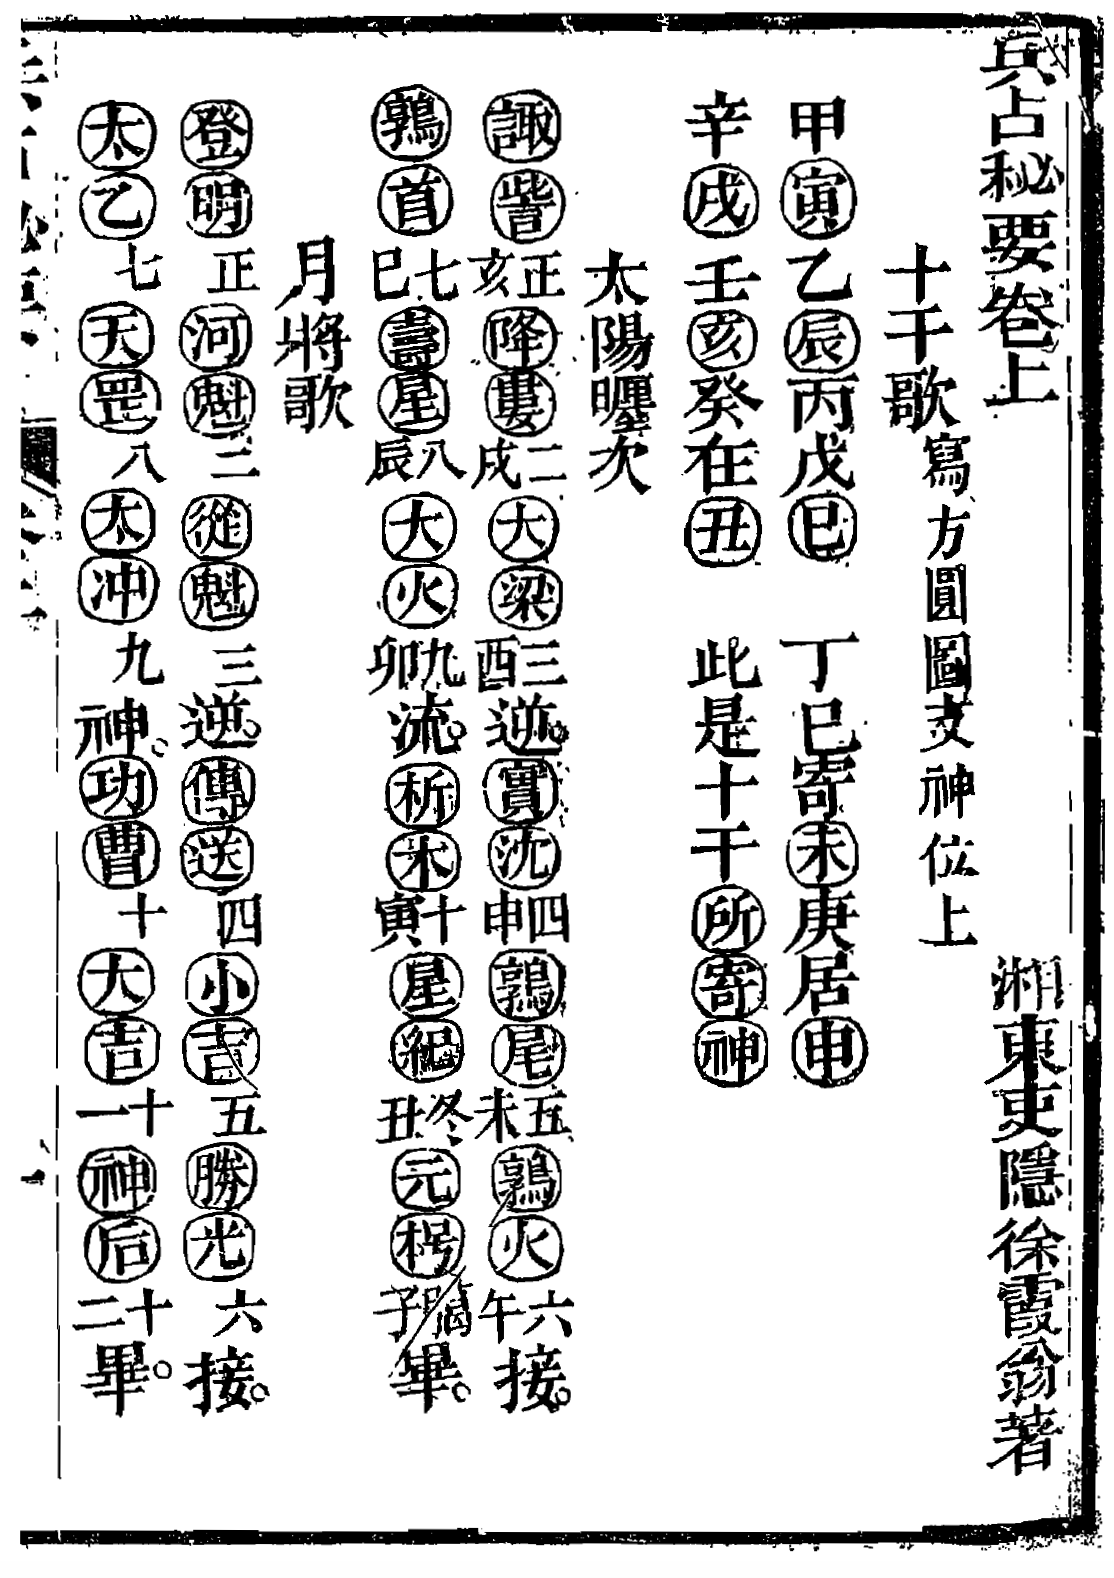 兵占秘要卷上　　湘東吏隱徐霞翁著
十干歌 寫方圓圖支神位上
甲寅乙辰丙戊巳　丁巳寄未庚居申
辛戌壬亥癸在丑　此是十干所寄神
太陽躔次
諏訾正亥降婁二戌大梁三酉逆。實沈四申鶉尾五未鶉火六午接。
鶉首七巳壽星八辰大火九卯流。析木十寅星紀冬丑元枵臈子畢。
月將歌
登明正河魁二從魁三逆。傳送四小吉五勝光六接。
太乙七天罡八太冲九神。功曹十大吉十一神后十二畢。